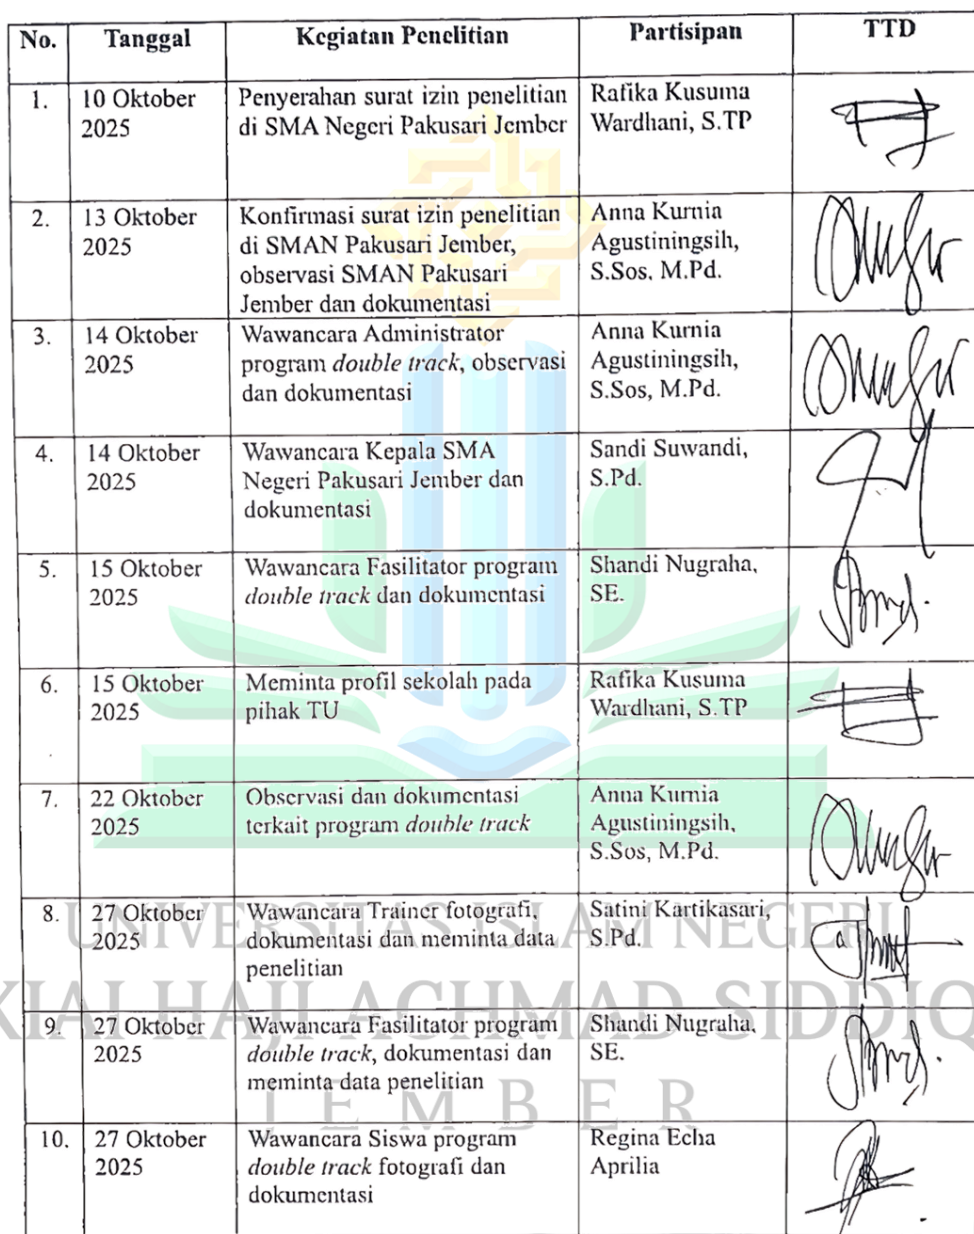 No. Tanggal Kegiatan Penelitian Partisipan TTD
1. 10 Oktober 2025 Penyerahan surat izin penelitian di SMA Negeri Pakusari Jember Rafika Kusuma Wardhani, S.TP
2. 13 Oktober 2025 Konfirmasi surat izin penelitian di SMAN Pakusari Jember, observasi SMAN Pakusari Jember dan dokumentasi Anna Kurnia Agustiningsih, S.Sos, M.Pd.
3. 14 Oktober 2025 Wawancara Administrator program double track, observasi dan dokumentasi Anna Kurnia Agustiningsih, S.Sos, M.Pd.
4. 14 Oktober 2025 Wawancara Kepala SMA Negeri Pakusari Jember dan dokumentasi Sandi Suwandi, S.Pd.
5. 15 Oktober 2025 Wawancara Fasilitator program double track dan dokumentasi Shandi Nugraha, SE.
6. 15 Oktober 2025 Meminta profil sekolah pada pihak TU Rafika Kusuma Wardhani, S.TP
7. 22 Oktober 2025 Observasi dan dokumentasi terkait program double track Anna Kurnia Agustiningsih, S.Sos, M.Pd.
8. 27 Oktober 2025 Wawancara Trainer fotografi, dokumentasi dan meminta data penelitian Satini Kartikasari, S.Pd.
9. 27 Oktober 2025 Wawancara Fasilitator program double track, dokumentasi dan meminta data penelitian Shandi Nugraha, SE.
10. 27 Oktober 2025 Wawancara Siswa program double track fotografi dan dokumentasi Regina Echa Aprilia
UNIVERSITAS ISLAM NEGERI
KIAI HAJI ACHMAD SIDDIQ
JEMBER